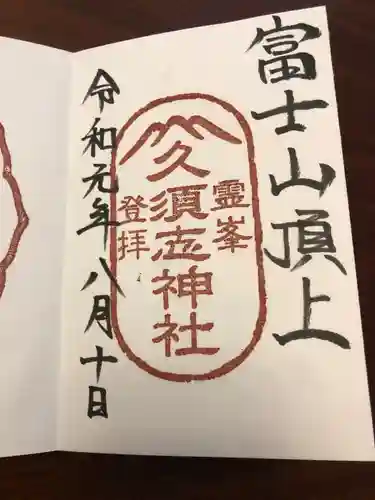 富士山頂上
霊峯
久須志神社
登拝
令和元年八月十日